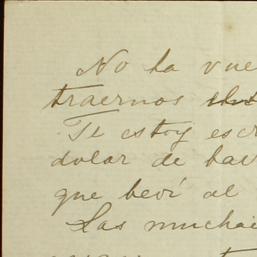 No ha vue
traernos
Te estoy escr
dolor de
que beví al
Las muchac